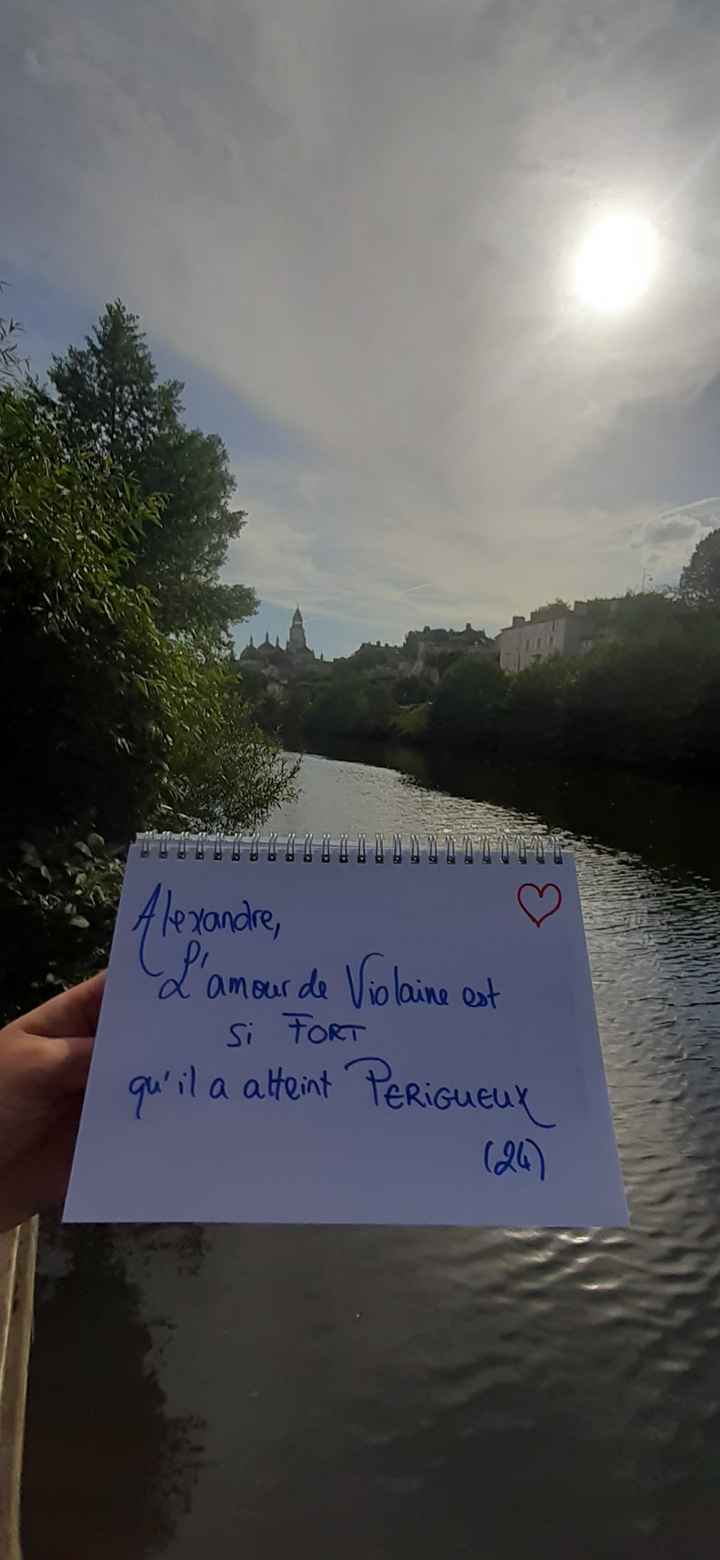 Alexandre,
L'amour de Violaine est
si FORT
qu'il a atteint PERIGUEUX
(24)